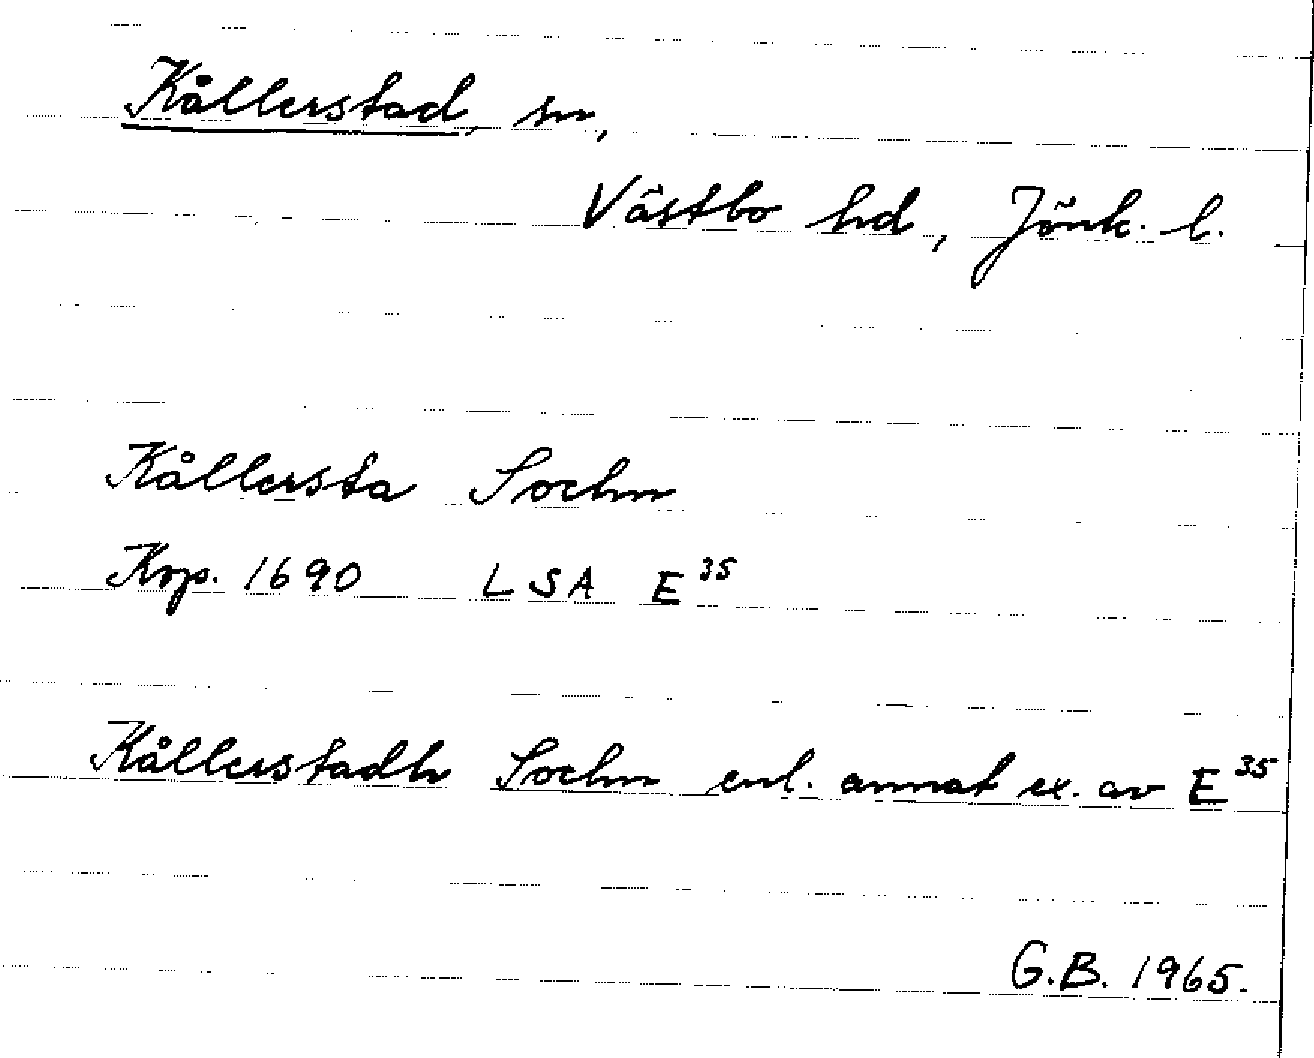 Kållerstad, sn,
Västbo hd, Jönk. l.
Kållersta Sochn
Kop. 1690 LSA E³⁵
Kållerstadh Sochn enl. annat ex. av E³⁵
G.B. 1965.